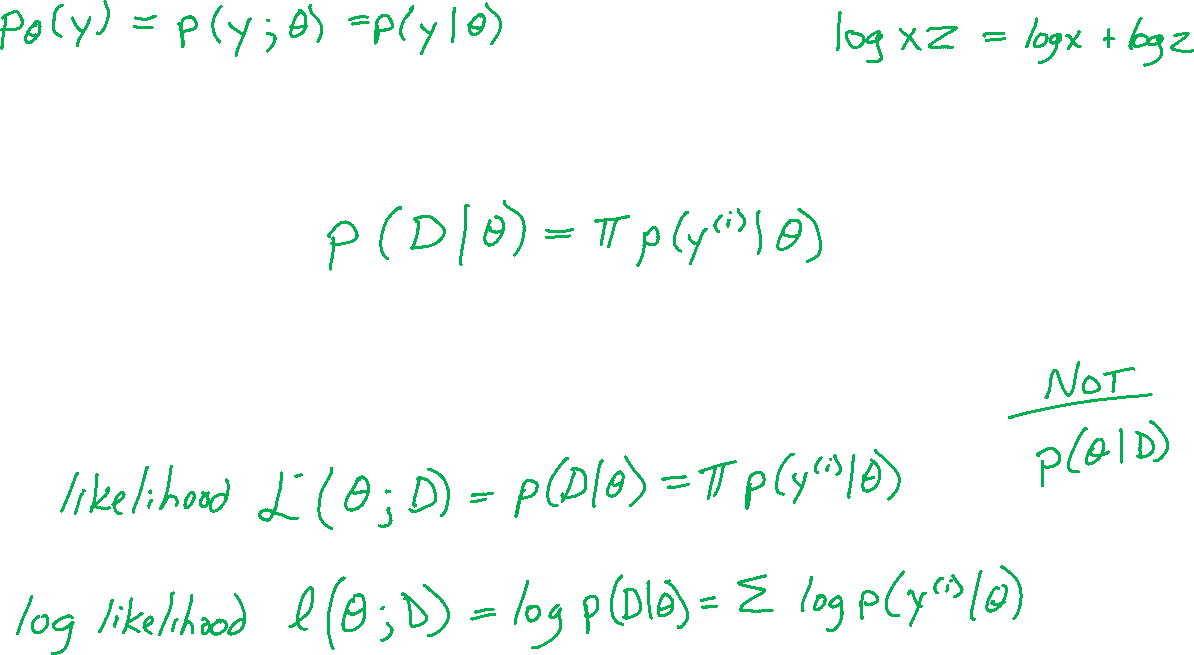 p_θ(y) = p(y;θ) = p(y|θ)
log xz = log x + log z
p(D|θ) = π p(y⁽ⁱ⁾|θ)
NOT
p(θ|D)
likelihood ℒ(θ;D) = p(D|θ) = π p(y⁽ⁱ⁾|θ)
log likelihood ℓ(θ;D) = log p(D|θ) = Σ log p(y⁽ⁱ⁾|θ)